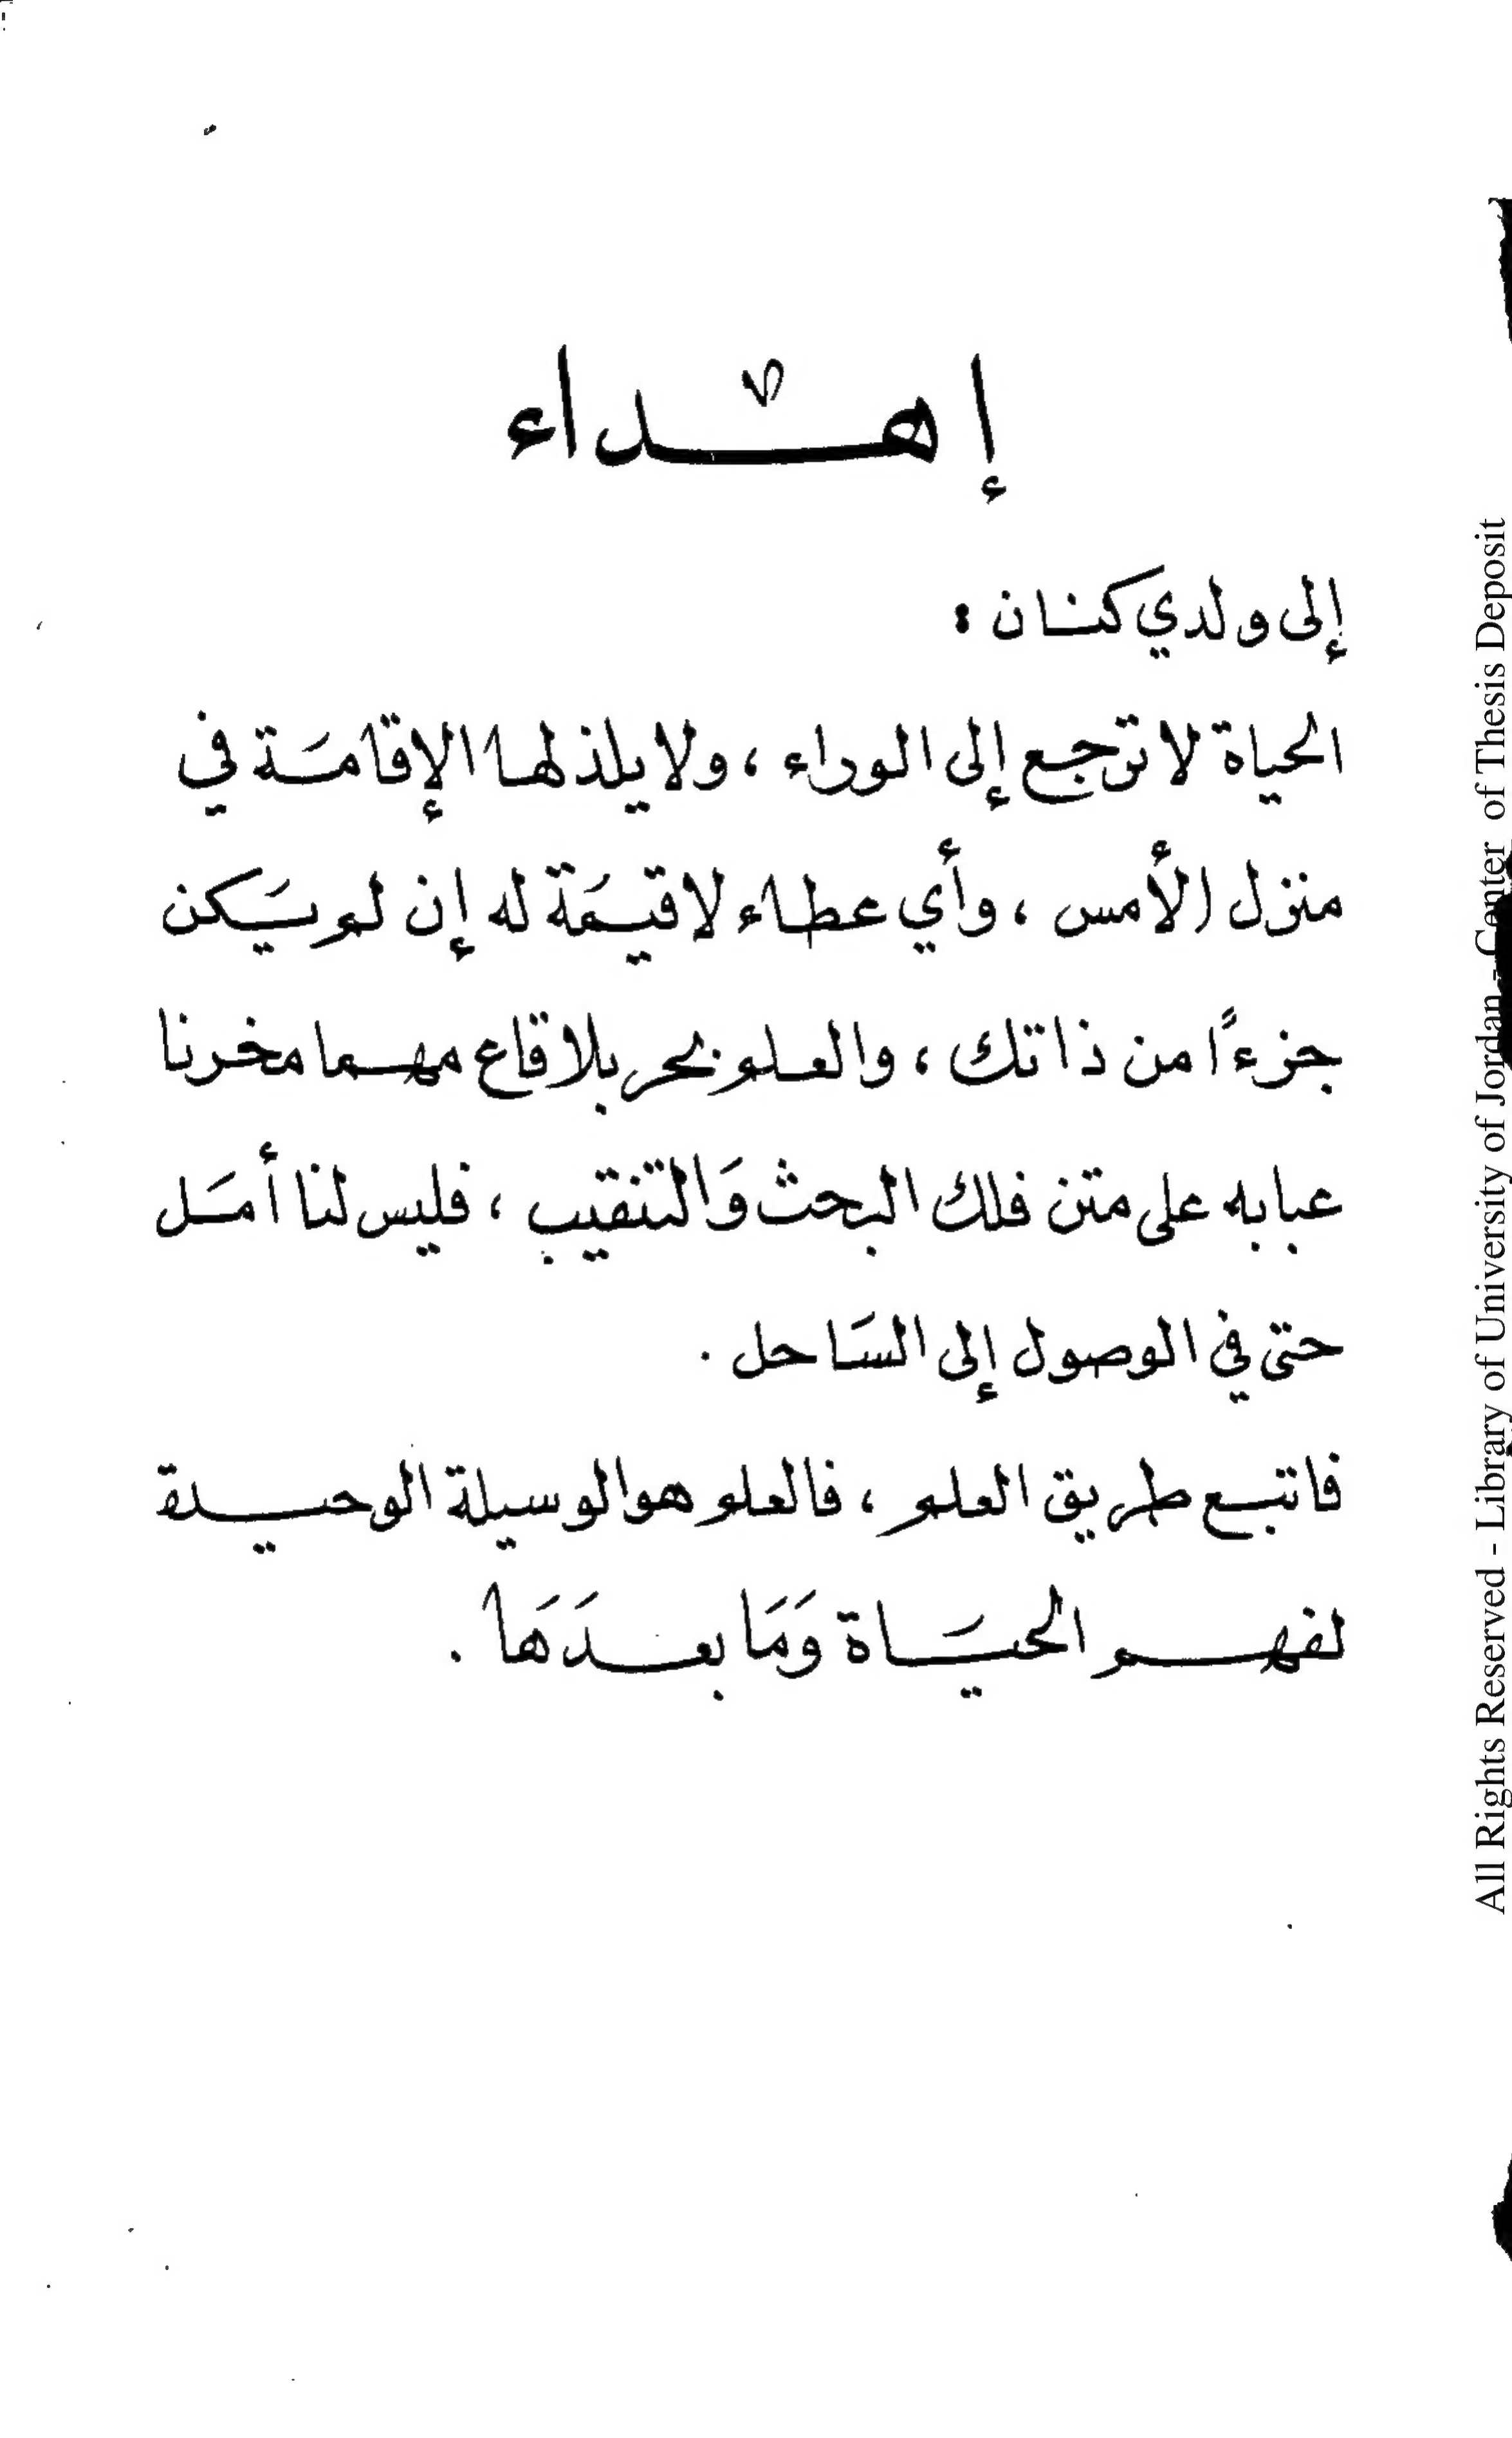 إهداء
إلى ولدي كنان :
الحياة لا ترجع إلى الوراء ، ولا يلذ لها الإقامَة في
منزل الأمس ، وأي عطاء لا قيمَة له إن لم يَكن
جزءًا من ذاتك ، والعلم بحر بلا قاع مهما مخرنا
عبابه على متن فلك البحث وَالتنقيب ، فليس لنا أمَل
حتى في الوصول إلى السَاحل .
فاتبع طريق العلم ، فالعلم هو الوسيلة الوحيدة
لفهم الحيَاة وَمَا بعدَهَا .
All Rights Reserved - Library of University of Jordan - Center of Thesis Deposit